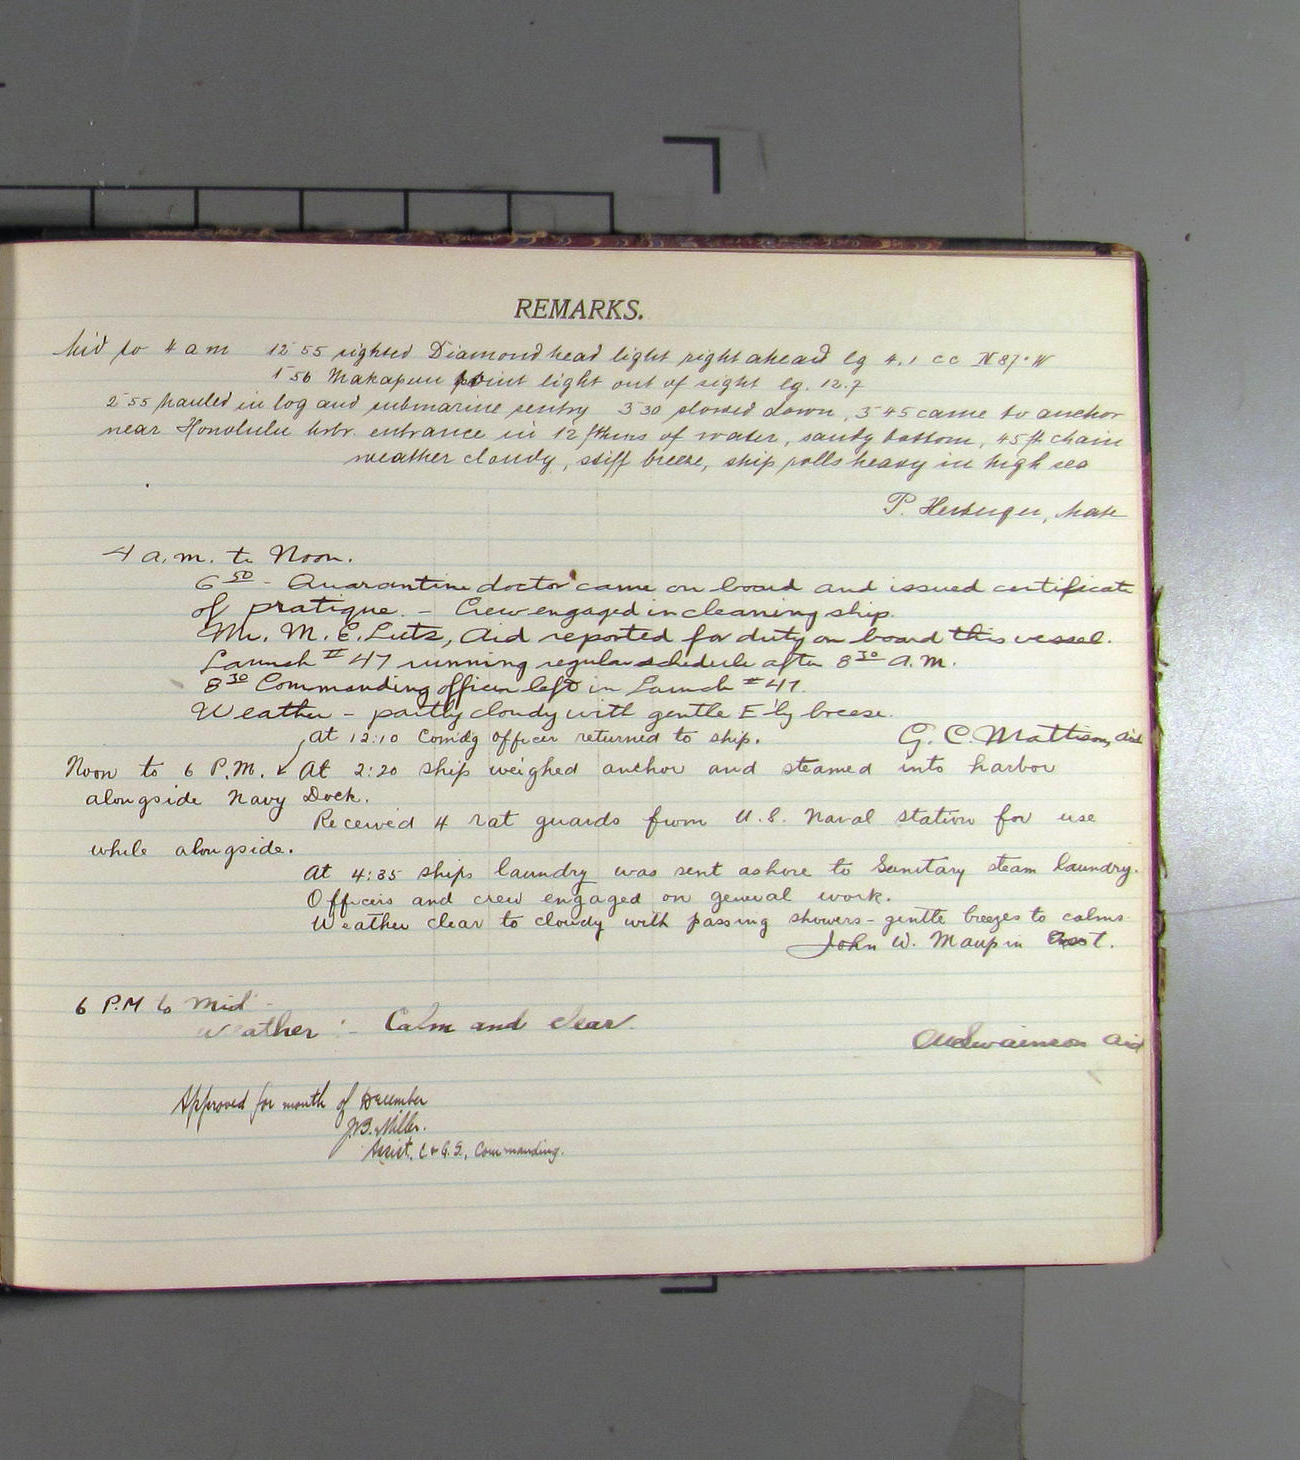 REMARKS.
Mid to 4 a m 12 55 sighted Diamond head light right ahead lg 4.1 cc N 87° W
1 56 Makapuu point light out of sight lg. 12.7
2 55 hauled in log and submarine sentry 3 30 slowed down, 3 45 came to anchor
near Honolulu hrbr. entrance in 12 fthms of water, sandy bottom, 45 ft chain
weather cloudy, stiff breeze, ship rolls heavy in high sea
P. , Mate
4 a.m. to Noon.
6 50 - Quarantine doctor came on board and issued certificate
of pratique. - Crew engaged in cleaning ship.
Mr. M. E. Lutz, Aid reported for duty on board this vessel.
Launch # 47 running regular schedule after 8 30 A.M.
8 30 Commanding officer left in Launch # 47.
Weather - partly cloudy with gentle E'ly breeze.
at 12:10 Com'dg officer returned to ship. G. C. Mattison, Aid
Noon to 6 P.M. At 2:20 ship weighed anchor and steamed into harbor
alongside Navy Dock.
Received 4 rat guards from U.S. Naval Station for use
while alongside.
At 4:35 ships laundry was sent ashore to Sanitary steam laundry.
Officers and crew engaged on general work.
Weather clear to cloudy with passing showers - gentle breezes to calms
John W. Maupin
6 P.M to Mid -
Weather :- Calm and clear.
Swainson Aid
Approved for month of December
J.B. Miller.
Assist. C & G. S., Commanding.